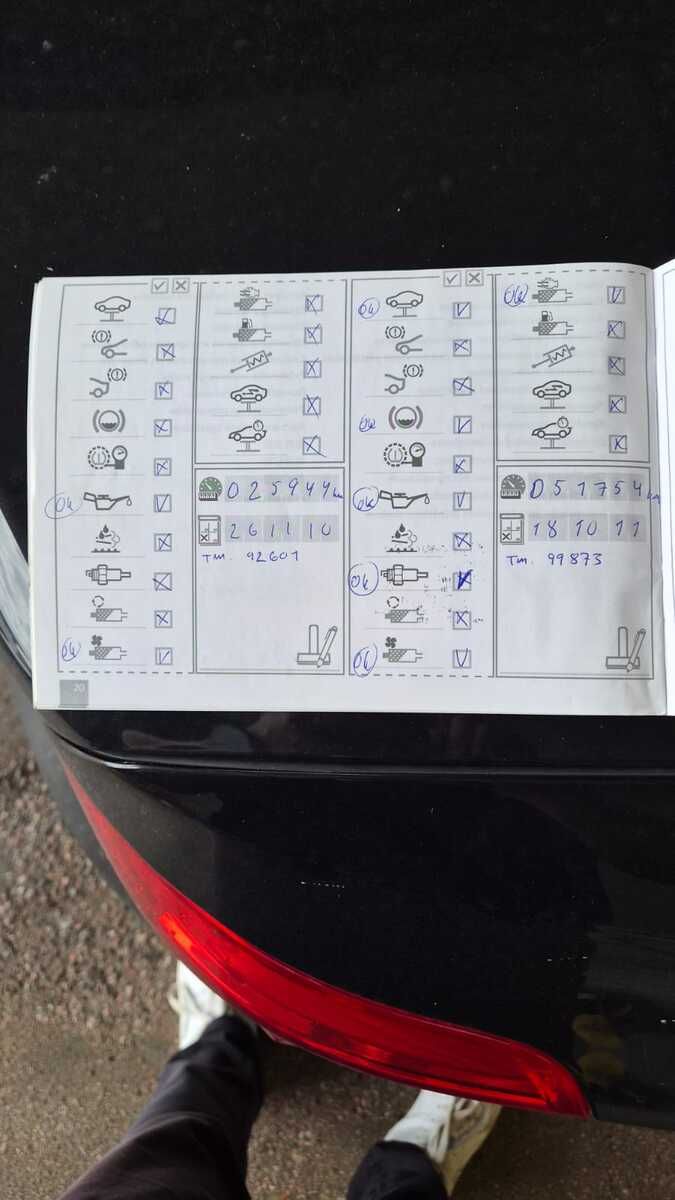 ok
ok
025944 km
26 11 10
Tm. 92601
20
ok
ok
ok
ok
ok
ok
051754 km
18 10 11
Tm. 99873